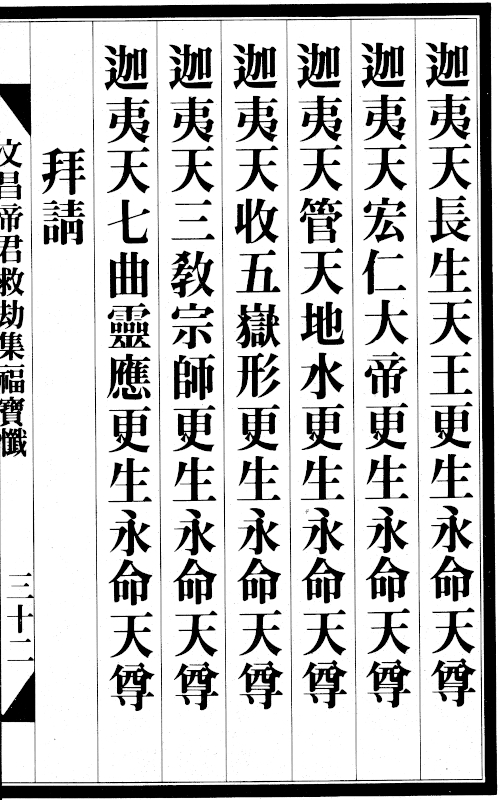 迦夷天長生天王更生永命天尊
迦夷天宏仁大帝更生永命天尊
迦夷天管天地水更生永命天尊
迦夷天收五嶽形更生永命天尊
迦夷天三教宗師更生永命天尊
迦夷天七曲靈應更生永命天尊
拜請
文昌帝君救劫集福寶懺
三十二